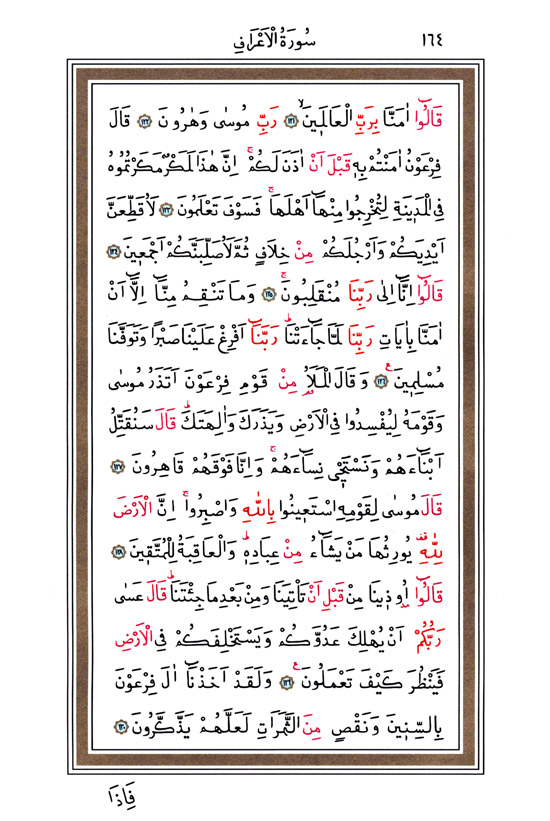 ١٦٤ سُورَةُ الْاَعْرَافِ
قَالُٓوا اٰمَنَّا بِرَبِّ الْعَالَم۪ينَۙ ﴿١٢١﴾ رَبِّ مُوسٰى وَهٰرُونَ ﴿١٢٢﴾ قَالَ
فِرْعَوْنُ اٰمَنْتُمْ بِه۪ قَبْلَ اَنْ اٰذَنَ لَكُمْۚ اِنَّ هٰذَا لَمَكْرٌ مَكَرْتُمُوهُ
فِي الْمَد۪ينَةِ لِتُخْرِجُوا مِنْهَٓا اَهْلَهَاۚ فَسَوْفَ تَعْلَمُونَ ﴿١٢٣﴾ لَاُقَطِّعَنَّ
اَيْدِيَكُمْ وَاَرْجُلَكُمْ مِنْ خِلَافٍ ثُمَّ لَاُصَلِّبَنَّكُمْ اَجْمَع۪ينَ ﴿١٢٤﴾
قَالُٓوا اِنَّٓا اِلٰى رَبِّنَا مُنْقَلِبُونَۚ ﴿١٢٥﴾ وَمَا تَنْقِمُ مِنَّٓا اِلَّٓا اَنْ
اٰمَنَّا بِاٰيَاتِ رَبِّنَا لَمَّا جَٓاءَتْنَاۜ رَبَّنَٓا اَفْرِغْ عَلَيْنَا صَبْرًا وَتَوَفَّنَا
مُسْلِم۪ينَ۟ ﴿١٢٦﴾ وَقَالَ الْمَلَاُ مِنْ قَوْمِ فِرْعَوْنَ اَتَذَرُ مُوسٰى
وَقَوْمَهُ لِيُفْسِدُوا فِي الْاَرْضِ وَيَذَرَكَ وَاٰلِهَتَكَۜ قَالَ سَنُقَتِّلُ
اَبْنَٓاءَهُمْ وَنَسْتَحْي۪ نِسَٓاءَهُمْۚ وَاِنَّا فَوْقَهُمْ قَاهِرُونَ ﴿١٢٧﴾
قَالَ مُوسٰى لِقَوْمِهِ اسْتَع۪ينُوا بِاللّٰهِ وَاصْبِرُواۚ اِنَّ الْاَرْضَ
لِلّٰهِ يُورِثُهَا مَنْ يَشَٓاءُ مِنْ عِبَادِه۪ۜ وَالْعَاقِبَةُ لِلْمُتَّق۪ينَ ﴿١٢٨﴾
قَالُٓوا اُو۫ذ۪ينَا مِنْ قَبْلِ اَنْ تَأْتِيَنَا وَمِنْ بَعْدِ مَا جِئْتَنَاۜ قَالَ عَسٰى
رَبُّكُمْ اَنْ يُهْلِكَ عَدُوَّكُمْ وَيَسْتَخْلِفَكُمْ فِي الْاَرْضِ
فَيَنْظُرَ كَيْفَ تَعْمَلُونَ۟ ﴿١٢٩﴾ وَلَقَدْ اَخَذْنَٓا اٰلَ فِرْعَوْنَ
بِالسِّن۪ينَ وَنَقْصٍ مِنَ الثَّمَرَاتِ لَعَلَّهُمْ يَذَّكَّرُونَ ﴿١٣٠﴾
فَاِذَا